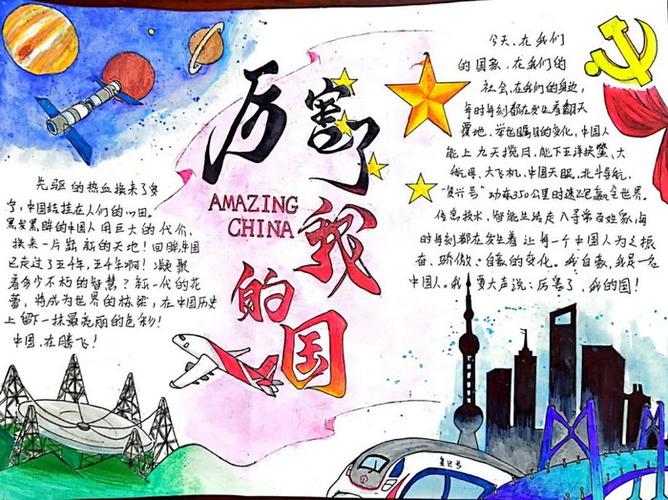 厉害了
我的国
AMAZING
CHINA
先驱的热血换来了安
宁,中国结挂在人们的心田。
黑发黑眸的中国人用巨大的代价,
换来一片崭新的天地!回眸中国
已走过了五千年,五千年啊!凝聚
着多少不朽的智慧?新一代的花
蕾,将成为世界的栋梁,在中国历史
上留下一抹最亮丽的色彩!
中国,在腾飞!
今天、在我们
的国家、在我们的
社会、在我们的身边,
每时每刻都在发生着翻天
覆地、举世瞩目的变化,中国人
能上九天揽月,能下五洋捉鳖、大
航母、大飞机,中国天眼、北斗导航,
“复兴号”功率350公里时速记赢全世界。
信息技术、智能生活走入寻常百姓家,每
时每刻都在发生着让每一个中国人为之振
奋、骄傲、自豪的变化。我自豪,我是一名
中国人。我要大声说:厉害了,我的国!
复兴号